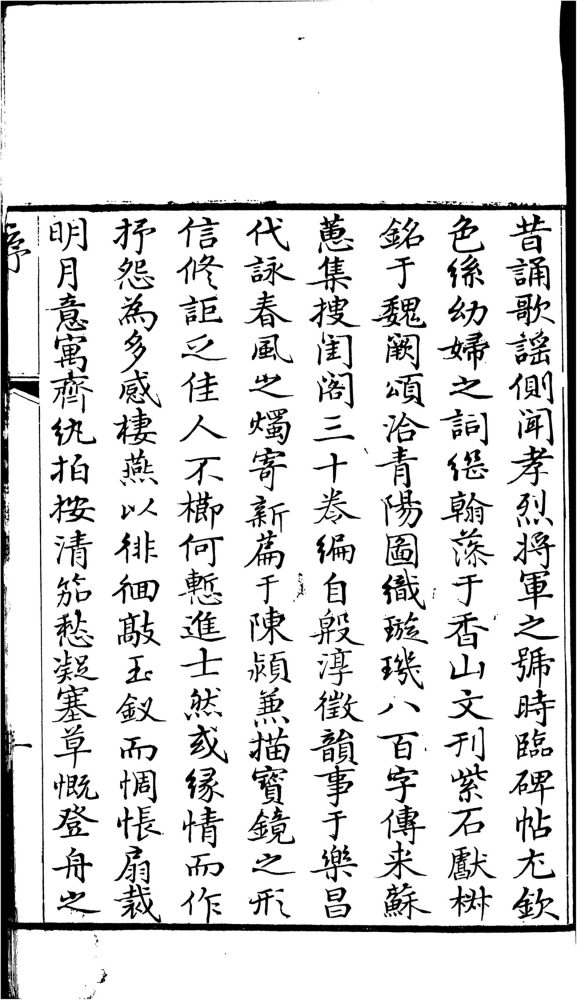 昔誦歌謠側聞孝烈將軍之號時臨碑帖尤欽
色絲幼婦之詞繼翰藻于香山文刊紫石獻椒
銘于魏闕頌洽青陽圖織璇璣八百字傳来蘇
蕙集搜閨閣三十卷編自殷淳徵韻事于樂昌
代詠春風之燭寄新篇于陳潁兼描寶鏡之形
信修詎乏佳人不櫛何慙進士然或緣情而作
抒怨為多感棲燕以徘徊敲玉釵而惆悵扇裁
明月意寓齊紈拍按清笳愁凝塞草慨登舟之
序
一